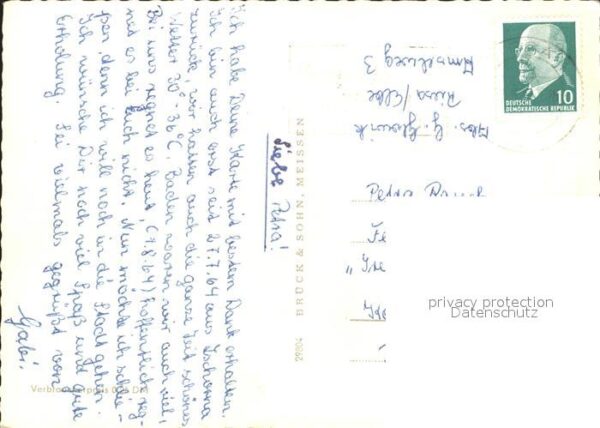 Liebe Petra!
Ich habe Deine Karte mit bestem Dank erhalten.
Ich bin auch erst seit 27.7.64 aus
zurück. Wir hatten auch die ganze Zeit schönes
Wetter 30°-36°C. Baden waren wir auch viel.
Bei uns regnet es heut, (1.8.64) hoffentlich reg-
net es bei Euch nicht. Nun möchte ich schlie-
ßen, denn ich will noch in die Stadt gehen.
Ich wünsche Dir noch viel Spaß und gute
Erholung. Sei vielmals gegrüßt von
Gabi.
Abs. G.
Riesa/Elbe
3
DEUTSCHE
DEMOKRATISCHE REPUBLIK
10
Petra
29804 BRÜCK & SOHN, MEISSEN
privacy protection
Datenschutz